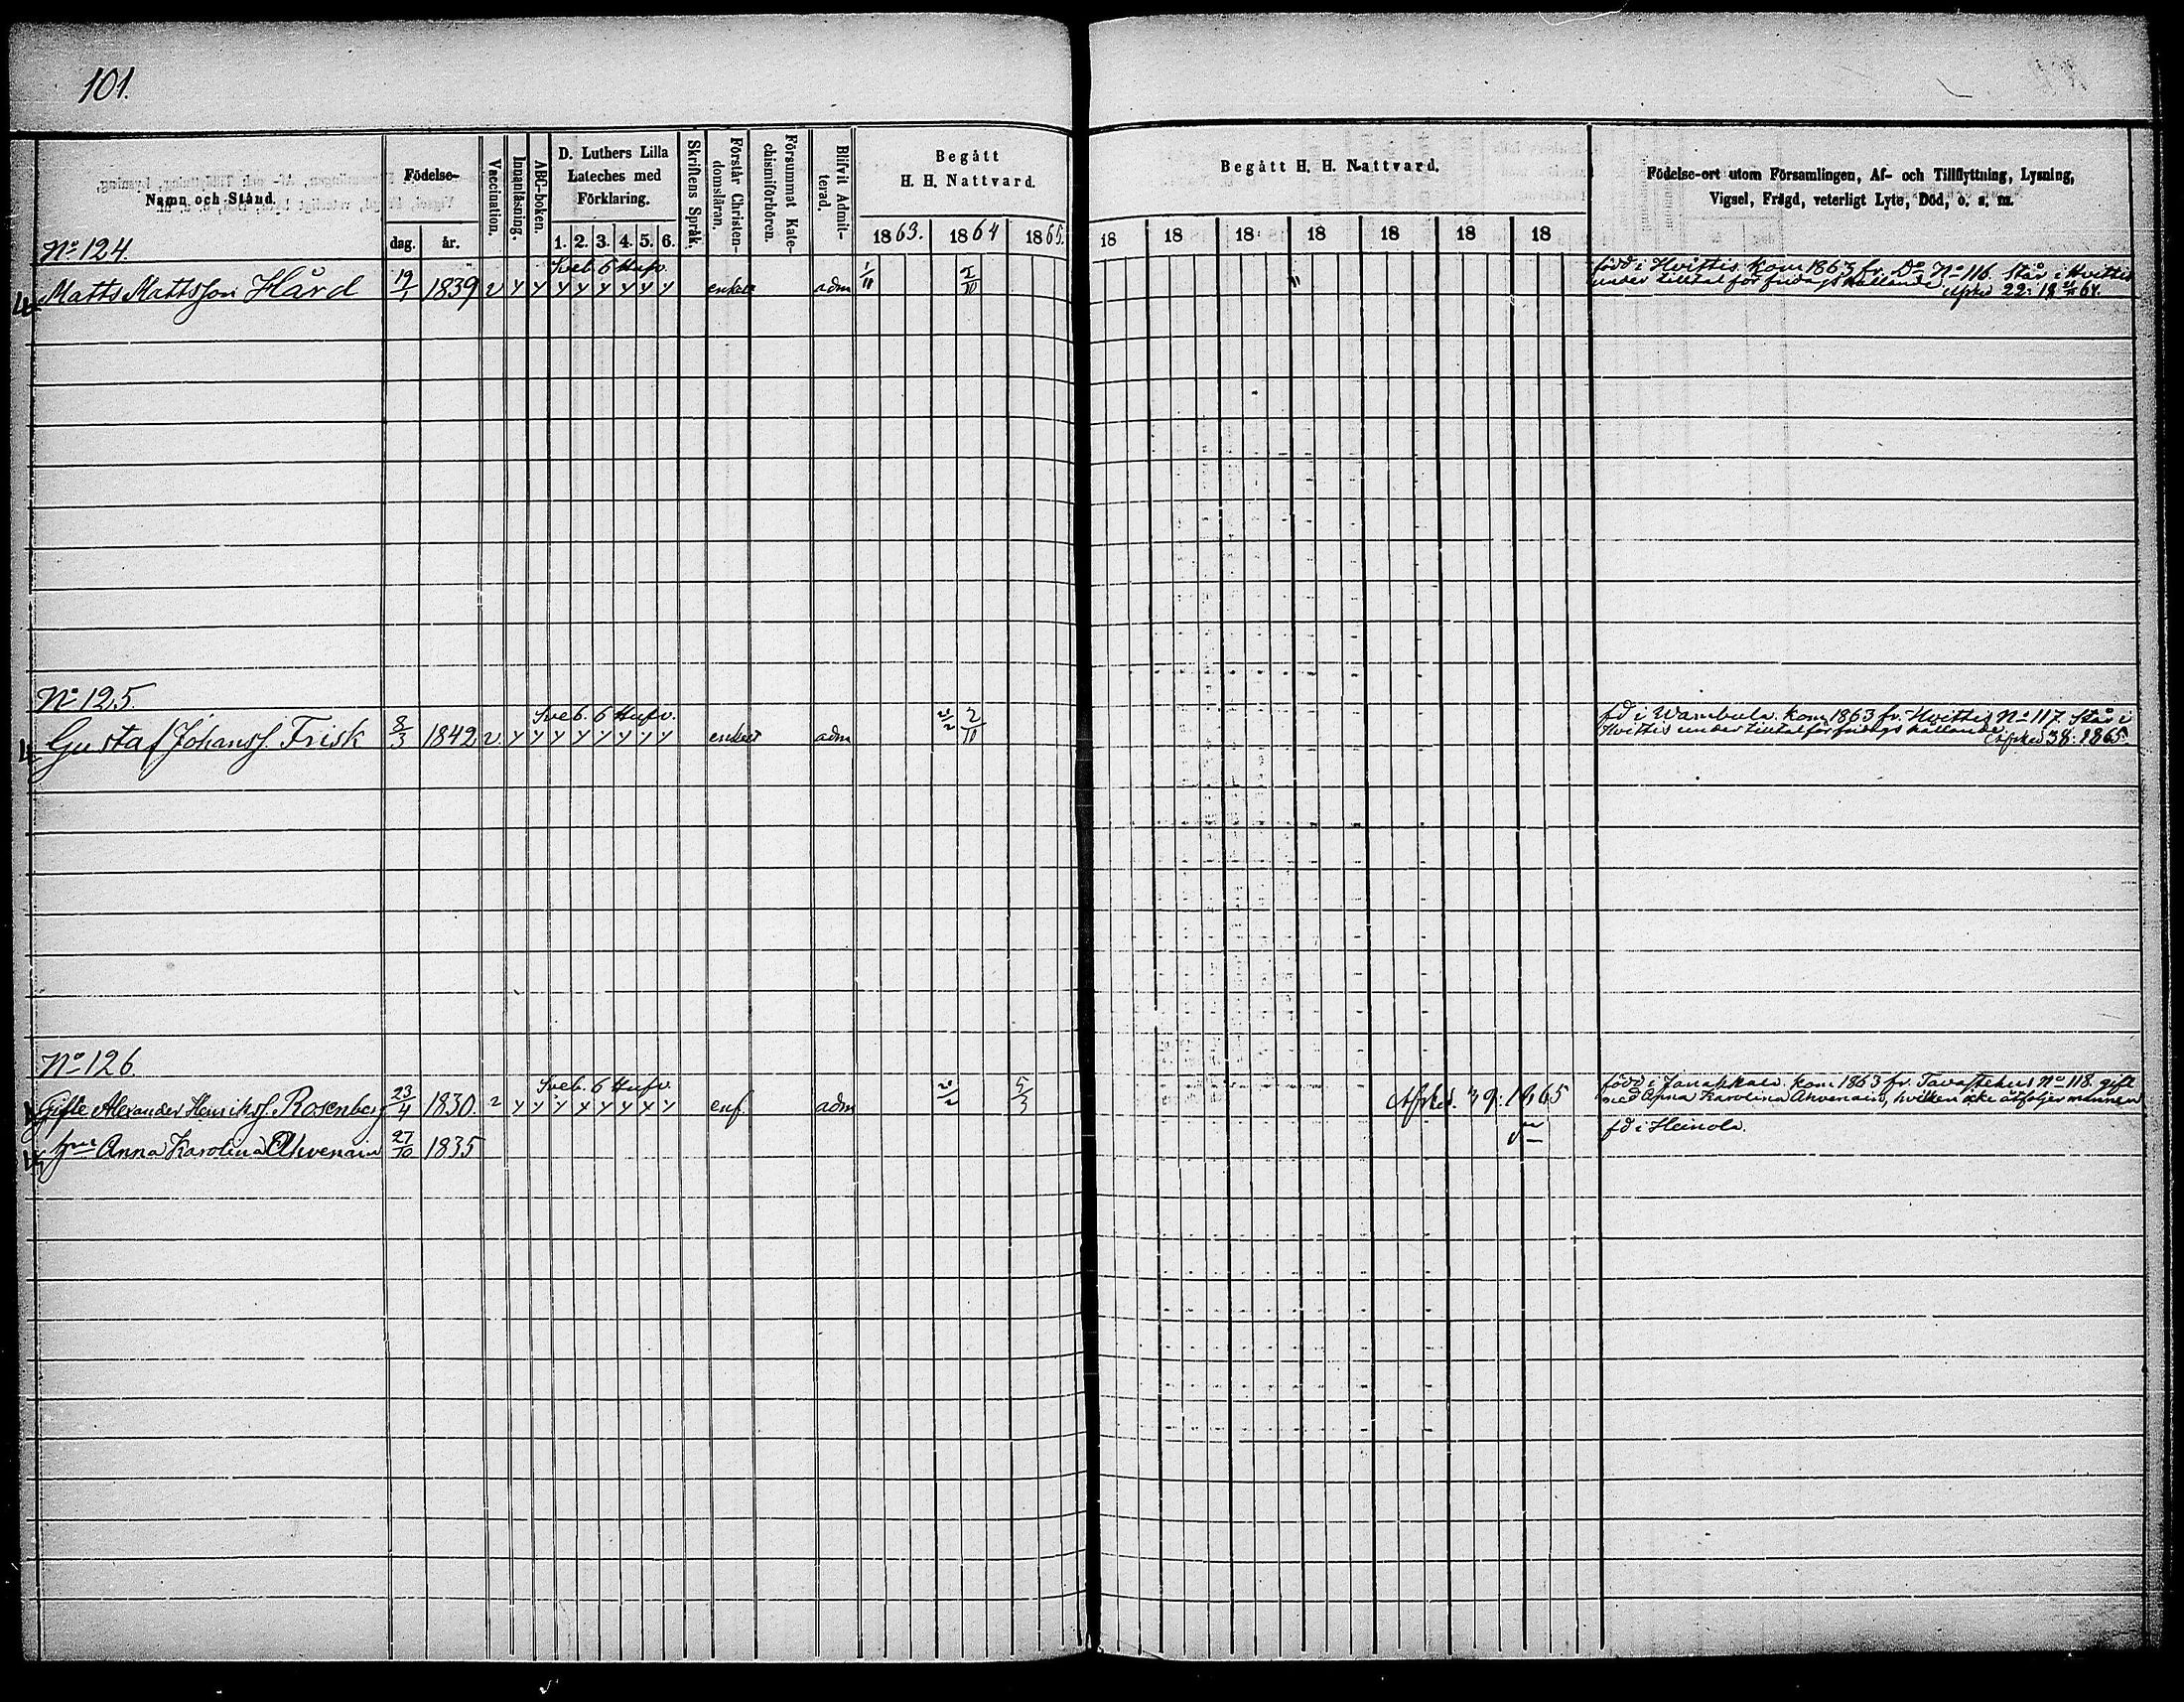 101.
Namn och Stånd.
Födelse-
dag. år.
Vaccination.
Innanläsning.
ABC-boken.
D. Luthers Lilla
Lateches med
Förklaring.
1. 2. 3. 4. 5. 6.
Skriftens Språk.
Förstår Christen-
domsläran.
Försummat Kate-
chismiförhören.
Blifvit Admit-
terad.
Begått
H. H. Nattvard.
1863. 1864 1865.
Begått H. H. Nattvard.
18 18 18 18 18 18 18
Födelse-ort utom Församlingen, Af- och Tillflyttning, Lysning,
Vigsel, Frägd, veterligt Lyte, Död, o. s. m.
No 124.
Sveb. 6 Hufv.
Matts Mattsson Hård 19/1 1839 v y y y y y y y y enkelt adm 1/11 2/10
född i Hvittis. kom 1863 fr. Do No 116. Står i Hvittis
under tilltal för fridags hållande. Afsked 22: 18 64.
No 125.
Sveb. 6 Hufv.
Gustaf Johanss. Frisk 8/3 1842 v. y y y y y y y y enkelt adm 2/11
fd i Wambula. kom 1863 fr. Hvittis No 117. Står i
Hvittis under tilltal för fridags hållande.
Afsked 38: 1865.
No 126.
Sveb. 6 Hufv.
Gifte Alexander Henrikss. Rosenberg 23/4 1830. v y y y y y y y y enf. adm 5/3 Afsked. 39: 1865
född i Janakkala. kom 1863 fr. Tavastehus No 118. gift
med Anna Karolina Ahvenain, hvilken icke åtföljer mannen
hu Anna Karolina Ahvenain 27/10 1835
fd i Heinola.